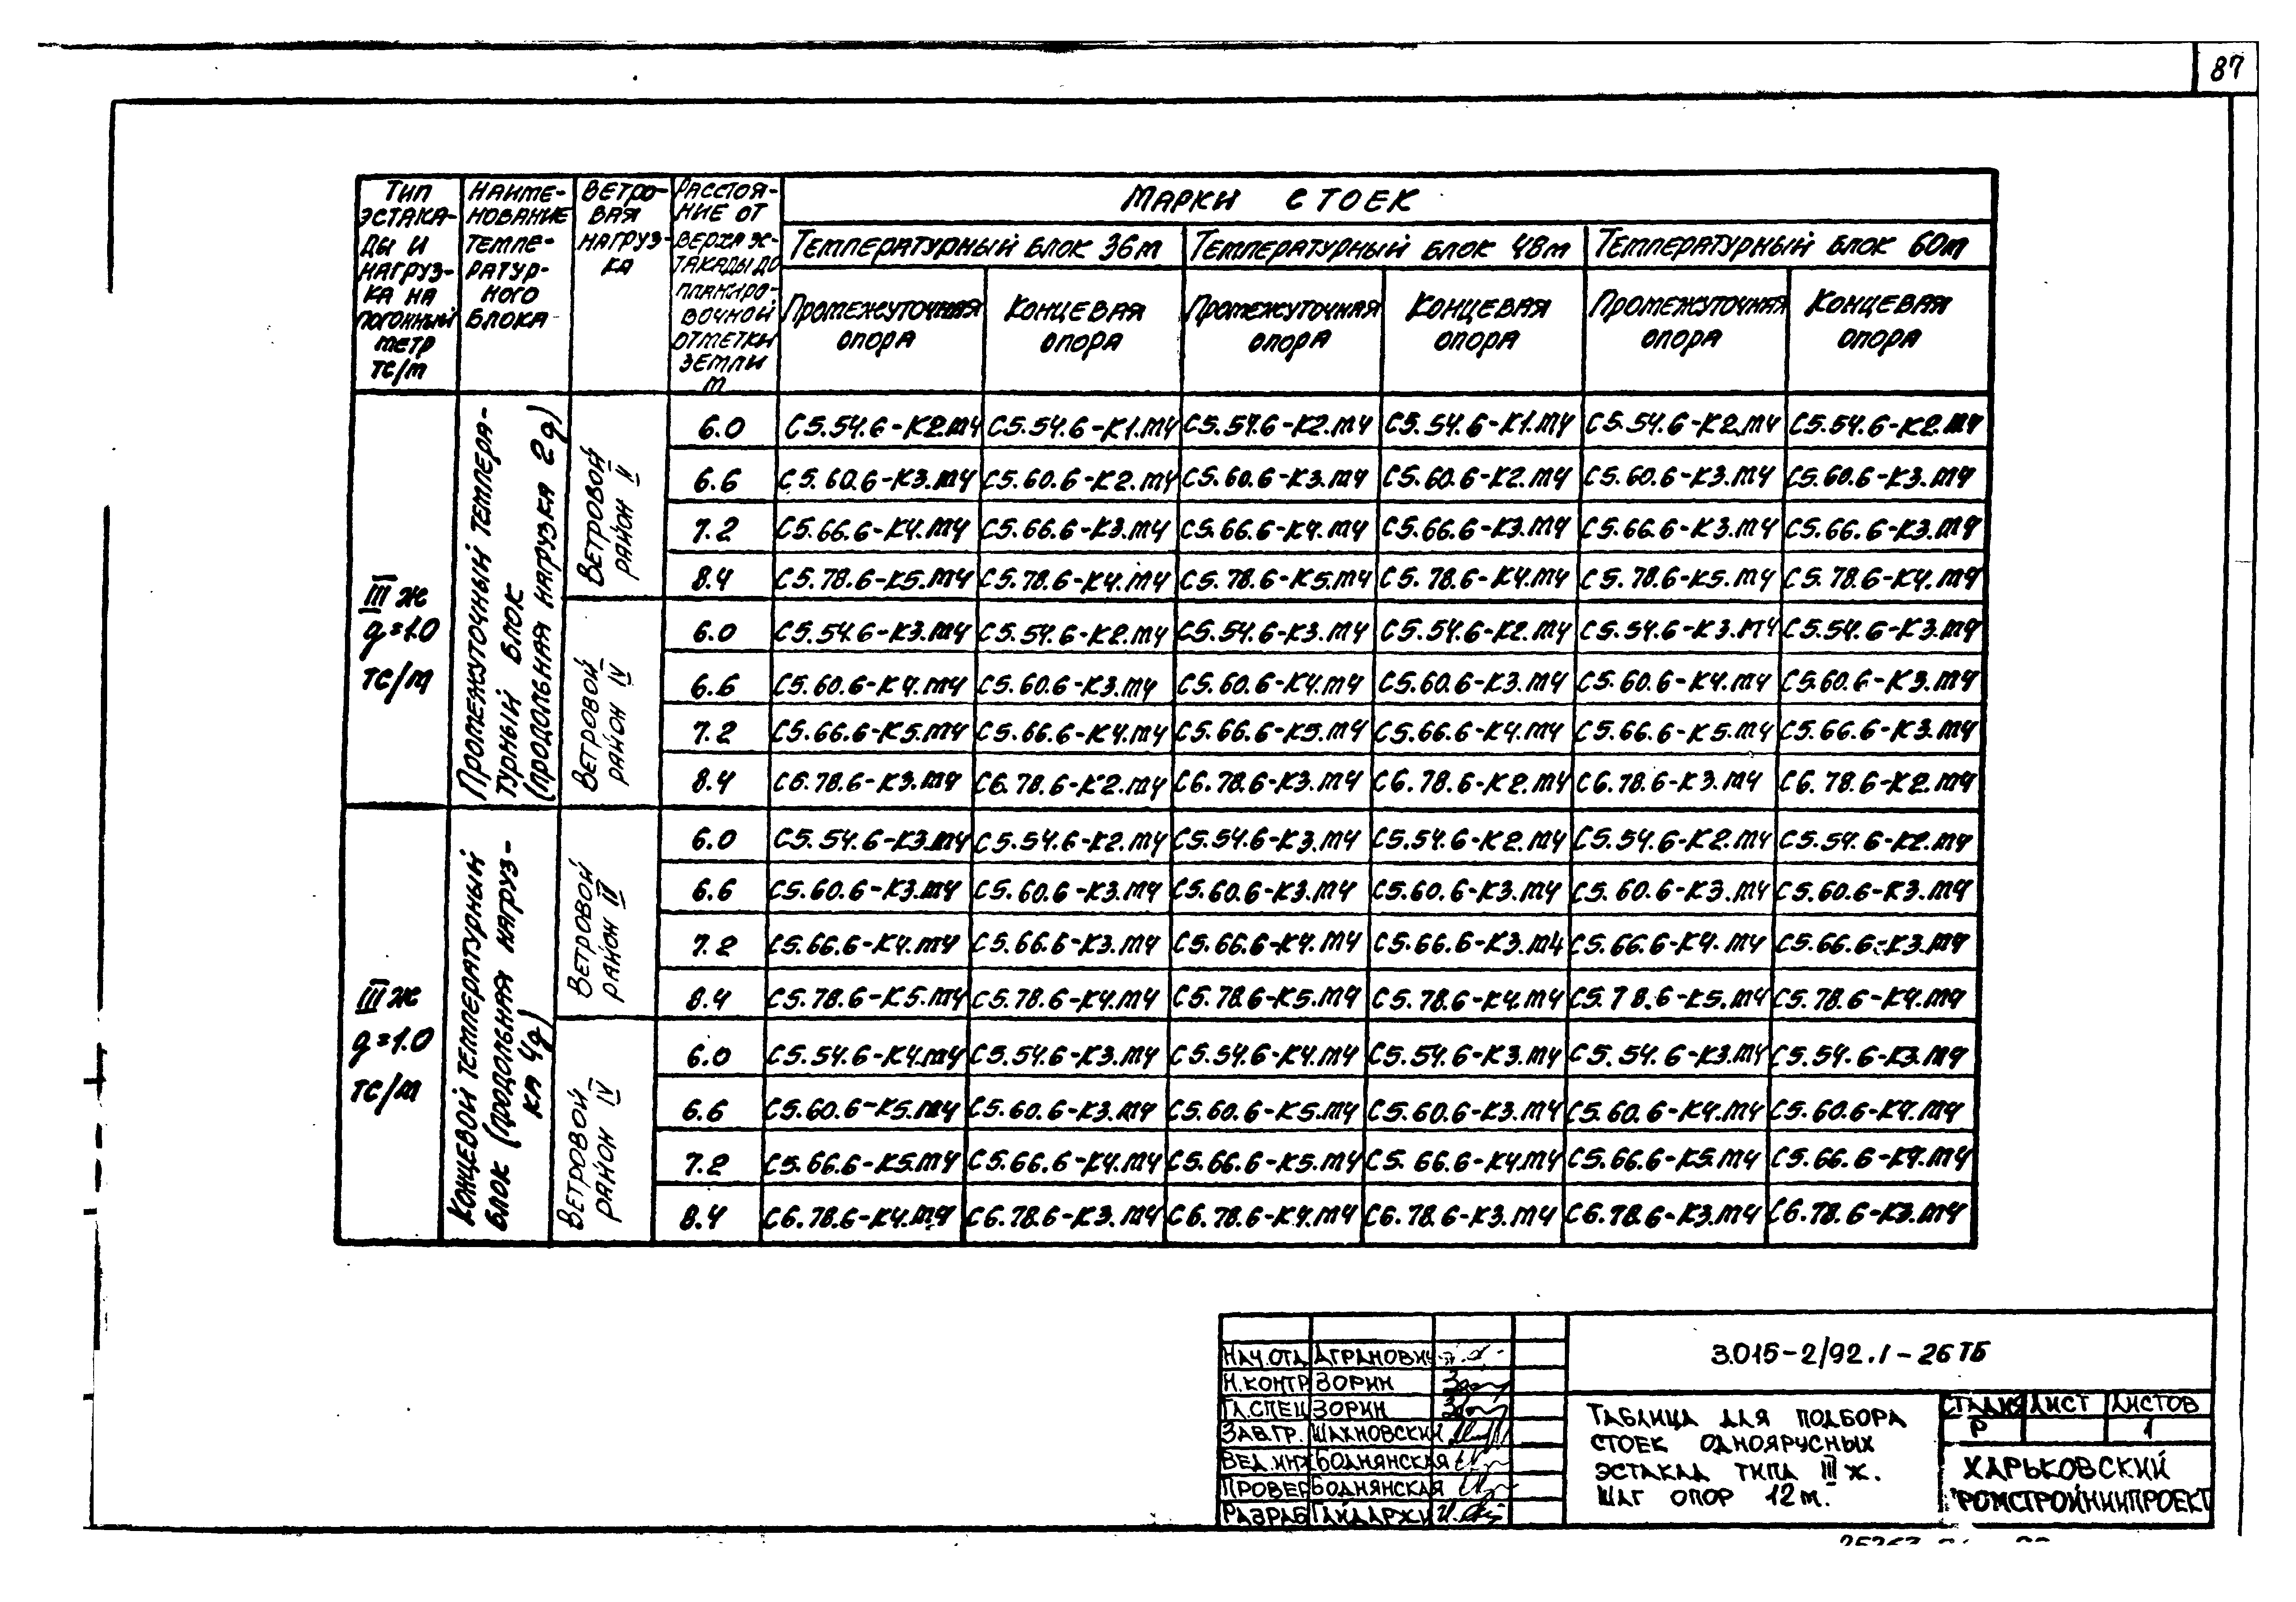 87
ТИП ЭСТАКА-ДЫ И НАГРУЗ-КА НА ПОГОННЫЙ МЕТР ТС/М
НАИМЕ-НОВАНИЕ ТЕМПЕ-РАТУР-НОГО БЛОКА
ВЕТРО-ВАЯ НАГРУЗ-КА
РАССТОЯ-НИЕ ОТ ВЕРХА ЭС-ТАКАДЫ ДО ПЛАНИРО-ВОЧНОЙ ОТМЕТКИ ЗЕМЛИ М
МАРКИ СТОЕК
ТЕМПЕРАТУРНЫЙ БЛОК 36М ТЕМПЕРАТУРНЫЙ БЛОК 48М ТЕМПЕРАТУРНЫЙ БЛОК 60М
ПРОМЕЖУТОЧНАЯ ОПОРА КОНЦЕВАЯ ОПОРА ПРОМЕЖУТОЧНАЯ ОПОРА КОНЦЕВАЯ ОПОРА ПРОМЕЖУТОЧНАЯ ОПОРА КОНЦЕВАЯ ОПОРА
III Ж
g=1.0
ТС/М
ПРОМЕЖУТОЧНЫЙ ТЕМПЕРА-
ТУРНЫЙ БЛОК
(ПРОДОЛЬНАЯ НАГРУЗКА 2g)
ВЕТРОВОЙ
РАЙОН II
6.0 С5.54.6-К2.М4 С5.54.6-К1.М4 С5.54.6-К2.М4 С5.54.6-К1.М4 С5.54.6-К2.М4 С5.54.6-К2.М4
6.6 С5.60.6-К3.М4 С5.60.6-К2.М4 С5.60.6-К3.М4 С5.60.6-К2.М4 С5.60.6-К3.М4 С5.60.6-К3.М4
7.2 С5.66.6-К4.М4 С5.66.6-К3.М4 С5.66.6-К4.М4 С5.66.6-К3.М4 С5.66.6-К3.М4 С5.66.6-К3.М4
8.4 С5.78.6-К5.М4 С5.78.6-К4.М4 С5.78.6-К5.М4 С5.78.6-К4.М4 С5.78.6-К5.М4 С5.78.6-К4.М4
ВЕТРОВОЙ
РАЙОН IV
6.0 С5.54.6-К3.М4 С5.54.6-К2.М4 С5.54.6-К3.М4 С5.54.6-К2.М4 С5.54.6-К3.М4 С5.54.6-К3.М4
6.6 С5.60.6-К4.М4 С5.60.6-К3.М4 С5.60.6-К4.М4 С5.60.6-К3.М4 С5.60.6-К4.М4 С5.60.6-К3.М4
7.2 С5.66.6-К5.М4 С5.66.6-К4.М4 С5.66.6-К5.М4 С5.66.6-К4.М4 С5.66.6-К5.М4 С5.66.6-К3.М4
8.4 С6.78.6-К3.М4 С6.78.6-К2.М4 С6.78.6-К3.М4 С6.78.6-К2.М4 С6.78.6-К3.М4 С6.78.6-К2.М4
III Ж
g=1.0
ТС/М
КОНЦЕВОЙ ТЕМПЕРАТУРНЫЙ
БЛОК (ПРОДОЛЬНАЯ НАГРУЗ-
КА 4g)
ВЕТРОВОЙ
РАЙОН II
6.0 С5.54.6-К3.М4 С5.54.6-К2.М4 С5.54.6-К3.М4 С5.54.6-К2.М4 С5.54.6-К2.М4 С5.54.6-К2.М4
6.6 С5.60.6-К3.М4 С5.60.6-К3.М4 С5.60.6-К3.М4 С5.60.6-К3.М4 С5.60.6-К3.М4 С5.60.6-К3.М4
7.2 С5.66.6-К4.М4 С5.66.6-К3.М4 С5.66.6-К4.М4 С5.66.6-К3.М4 С5.66.6-К4.М4 С5.66.6-К3.М4
8.4 С5.78.6-К5.М4 С5.78.6-К4.М4 С5.78.6-К5.М4 С5.78.6-К4.М4 С5.78.6-К5.М4 С5.78.6-К4.М4
ВЕТРОВОЙ
РАЙОН IV
6.0 С5.54.6-К4.М4 С5.54.6-К3.М4 С5.54.6-К4.М4 С5.54.6-К3.М4 С5.54.6-К3.М4 С5.54.6-К3.М4
6.6 С5.60.6-К5.М4 С5.60.6-К3.М4 С5.60.6-К5.М4 С5.60.6-К3.М4 С5.60.6-К4.М4 С5.60.6-К4.М4
7.2 С5.66.6-К5.М4 С5.66.6-К4.М4 С5.66.6-К5.М4 С5.66.6-К4.М4 С5.66.6-К5.М4 С5.66.6-К4.М4
8.4 С6.78.6-К4.М4 С6.78.6-К3.М4 С6.78.6-К4.М4 С6.78.6-К3.М4 С6.78.6-К3.М4 С6.78.6-К3.М4
НАЧ.ОТД АГРАНОВИЧ
Н.КОНТР ЗОРИН
ГЛ.СПЕЦ ЗОРИН
ЗАВ.ГР. ШАХНОВСКИЙ
ВЕД.ИНЖ БОДНЯНСКАЯ
ПРОВЕР БОДНЯНСКАЯ
РАЗРАБ ГАЙДАРЖИ
3.015-2/92.1-26ТБ
ТАБЛИЦА ДЛЯ ПОДБОРА
СТОЕК ОДНОЯРУСНЫХ
ЭСТАКАД ТИПА III Ж.
ШАГ ОПОР 12М.
СТАДИЯ ЛИСТ ЛИСТОВ
Р 1
ХАРЬКОВСКИЙ
РОМСТРОЙНИИПРОЕКТ